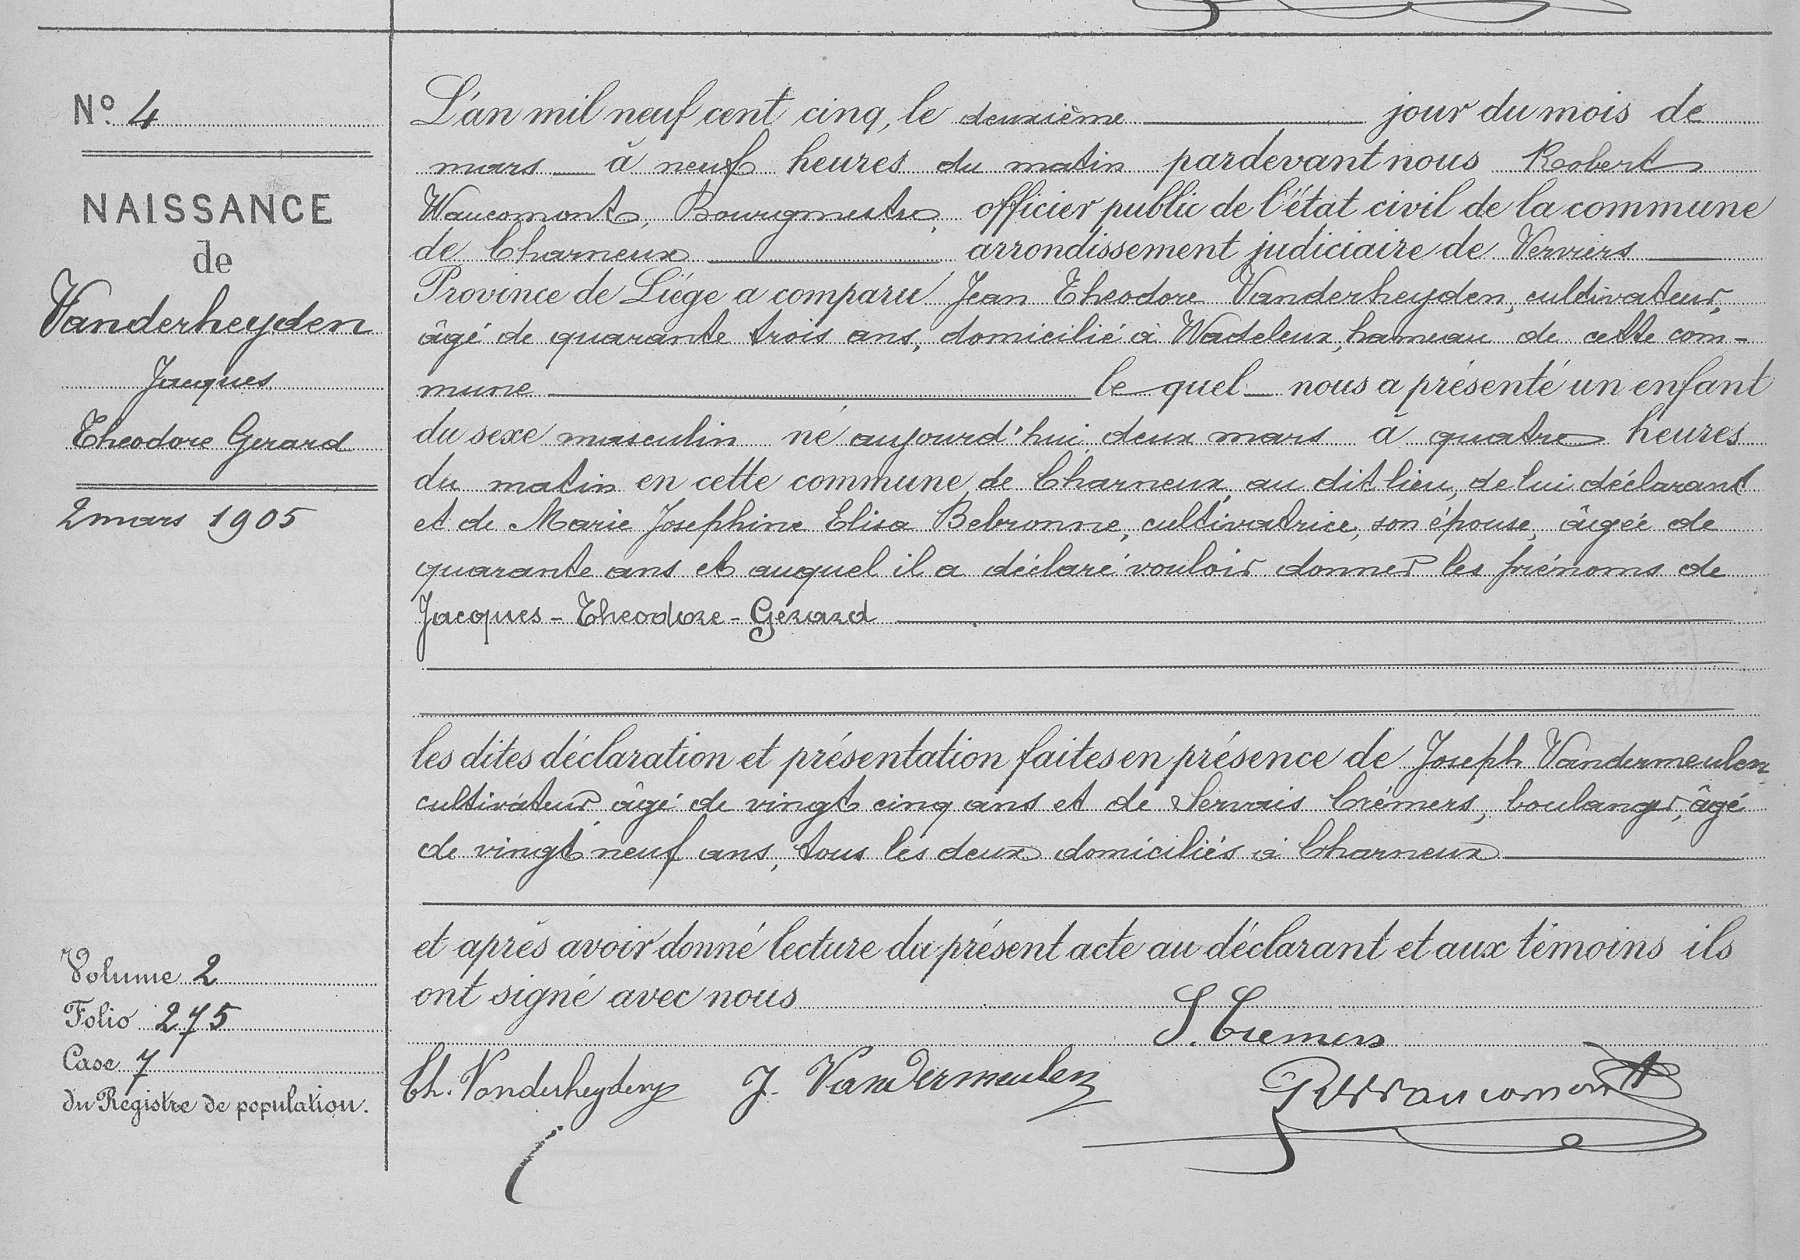 Nº 4
NAISSANCE
de
Vanderheyden
Jacques
Theodore Gerard
2 mars 1905
Volume 2
Folio 275
Case 7
du Registre de population.
L'an mil neuf cent cinq, le deuxième jour du mois de
mars à neuf heures du matin pardevant nous Robert
Waucomont, Bourgmestre, officier public de l'état civil de la commune
de Charneux arrondissement judiciaire de Verviers
Province de Liége a comparu Jean Theodore Vanderheyden, cultivateur,
âgé de quarante trois ans, domicilié à Wadeleux, hameau de cette com-
mune le quel nous a présenté un enfant
du sexe masculin né aujourd'hui deux mars à quatre heures
du matin en cette commune de Charneux au dit lieu, de lui déclarant
et de Marie Josephine Elisa Bebronne, cultivatrice, son épouse, âgée de
quarante ans et auquel il a déclaré vouloir donner les prénoms de
Jacques - Theodore - Gérard
les dites déclaration et présentation faites en présence de Joseph Vandermeulen
cultivateur âgé de vingt cinq ans et de Servais Crémers, boulanger, âgé
de vingt neuf ans, tous les deux domiciliés à Charneux
et après avoir donné lecture du présent acte au déclarant et aux témoins ils
ont signé avec nous
S. Cremers
Th. Vanderheyden J. Vandermeulen RWaucomont